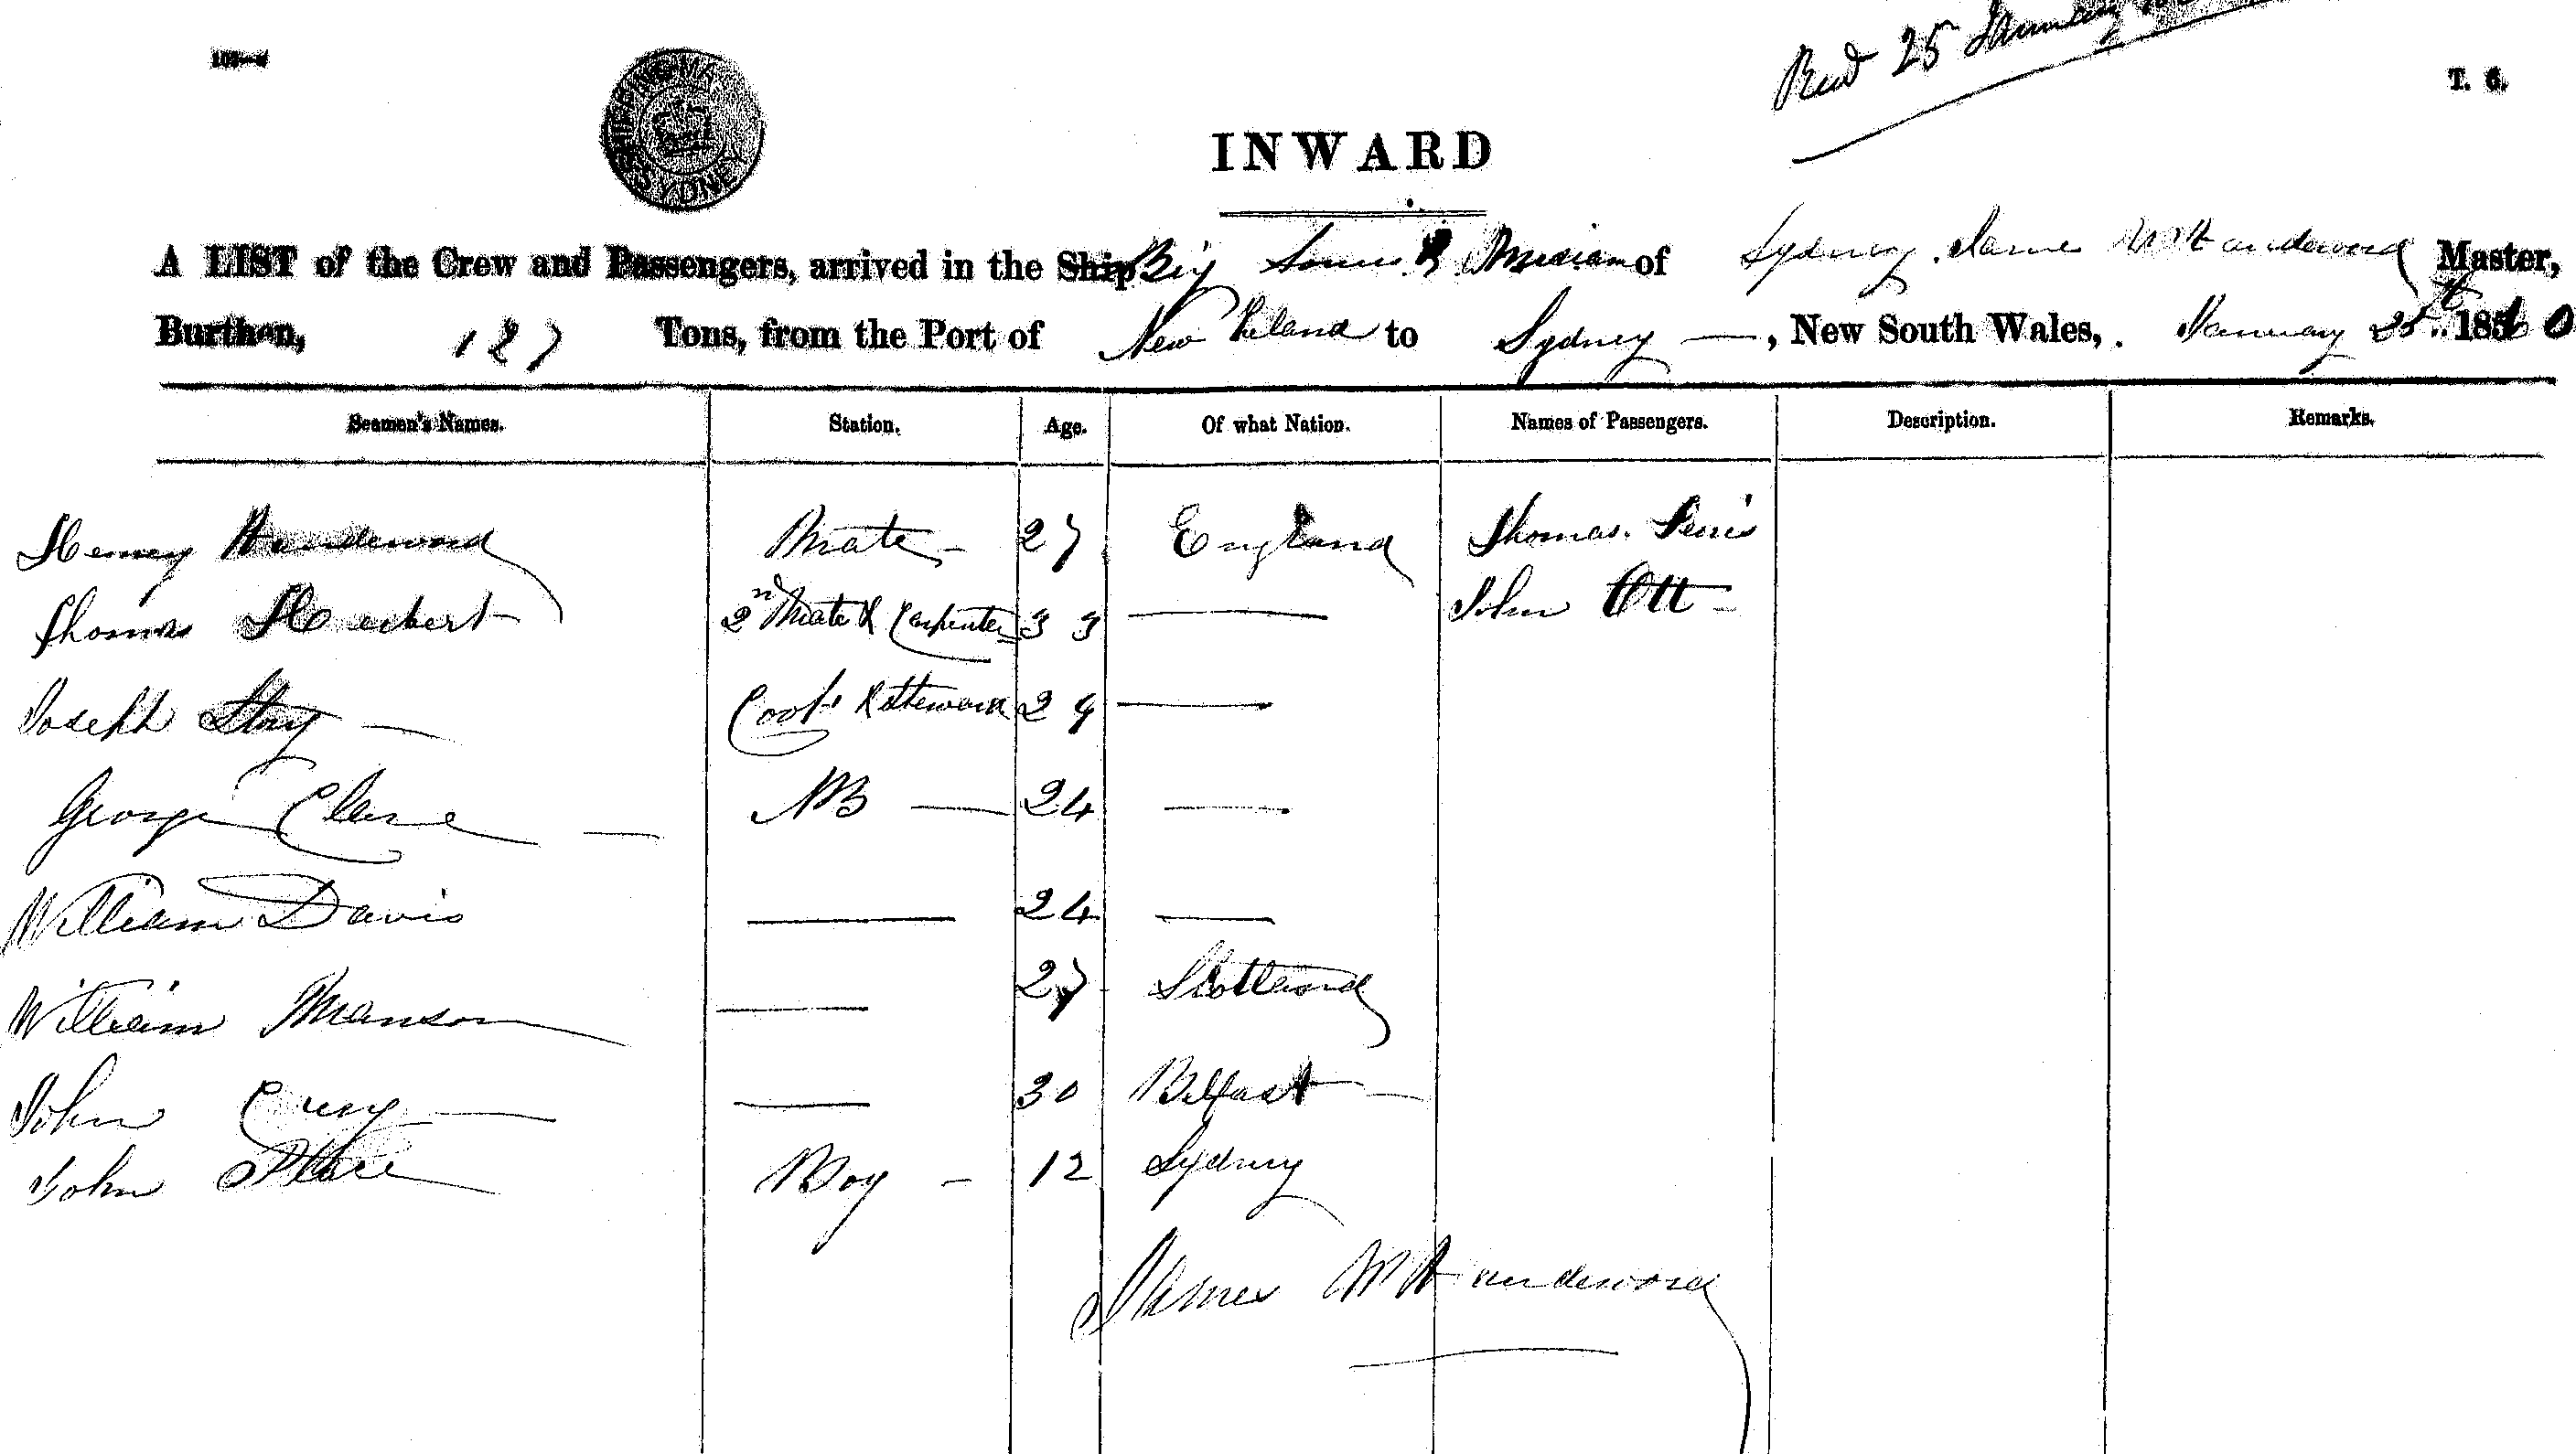 Recd 25 January
T. 6.
SHIPPING MA SYDNEY
INWARD
A LIST of the Crew and Passengers, arrived in the Ship Brig Louis & Miriam of Sydney James W Handeword Master,
Burthen, 127 Tons, from the Port of New Zeland to Sydney —, New South Wales, January 25th 1860
Seamen's Names. Station. Age. Of what Nation. Names of Passengers. Description. Remarks.
Henry Mate - 27 England Thomas
Thomas Herbert 2n Mate & Carpenter 33 — John Ott -
Joseph Story — Cook & Steward 29 —
George Clare — AB — 24 —
William Davis — 24 —
William Manson — 27 Scotland
John — — 30 Belfast —
John Boy - 12 Sydney
James W